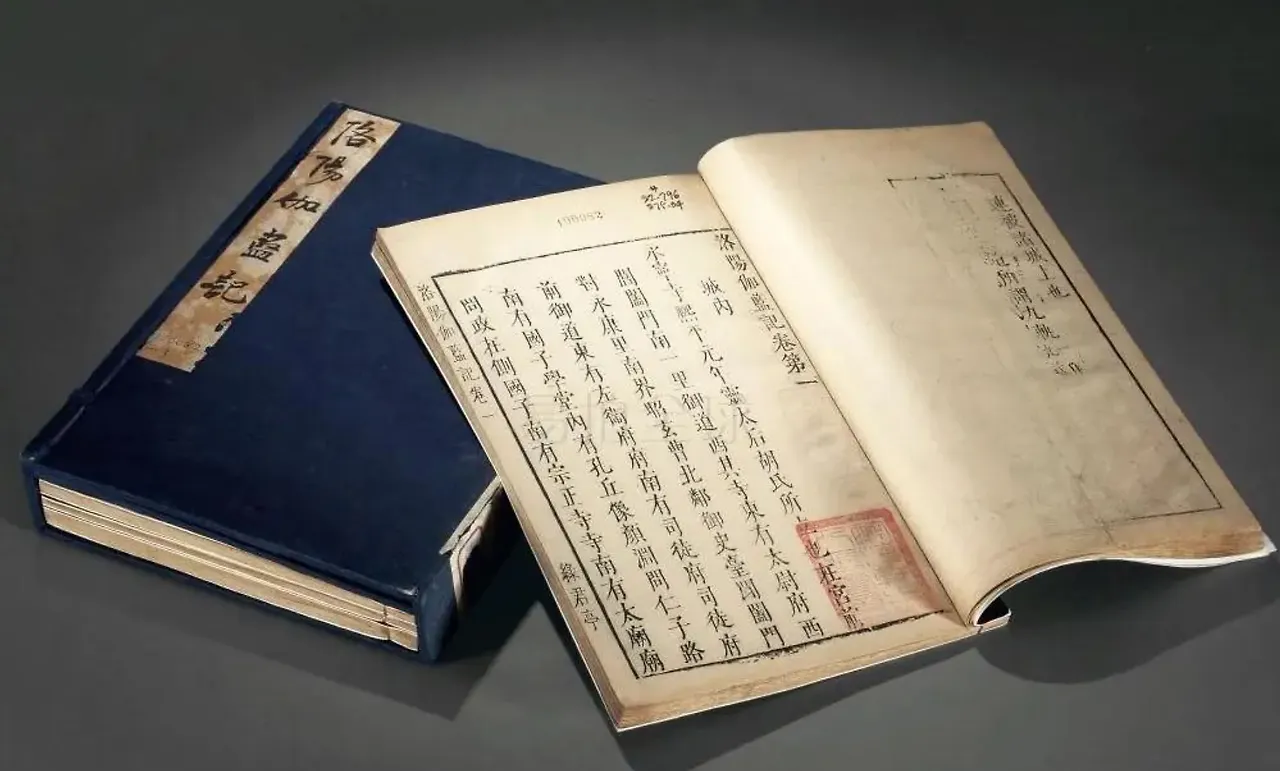 洛陽伽藍記
諸城上也
所謂九軌
洛陽伽藍記卷第一
城内
永寧寺熙平元年靈太后胡氏所立也在宮前
閶闔門南一里御道西其寺東有太尉府西
對永康里南界昭玄曹北鄰御史臺閶闔門
前御道東有左衛府府南有司徒府司徒府
南有國子學堂内有孔丘像顏淵問仁子路
問政在側國子南有宗正寺寺南有太廟廟
洛陽伽藍記卷一
綠君亭